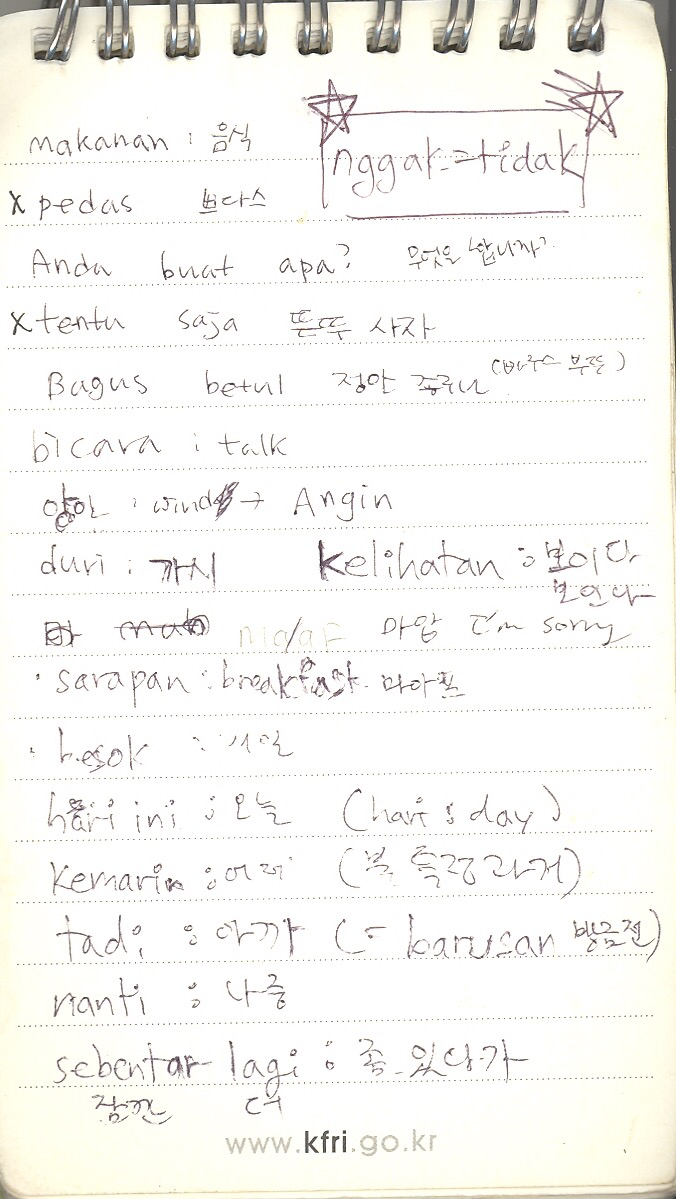 makanan : 음식
nggak = tidak
x pedas 쁘다스
Anda buat apa? 무엇을 합니까?
x tentu saja 뜬뚜 사자
Bagus betul 정말 좋구나 (바구스 부뚤)
bicara : talk
앙인 : wind → Angin
duri : 가시 kelihatan : 보이다
보인다
마압 I'm sorry
· sarapan : breakfast
· besok : 내일
hari ini : 오늘 (hari : day)
kemarin : 어제 (불특정과거)
tadi : 아까 (= barusan 방금전)
nanti : 나중
sebentar lagi : 좀 있다가
잠깐 더
www.kfri.go.kr